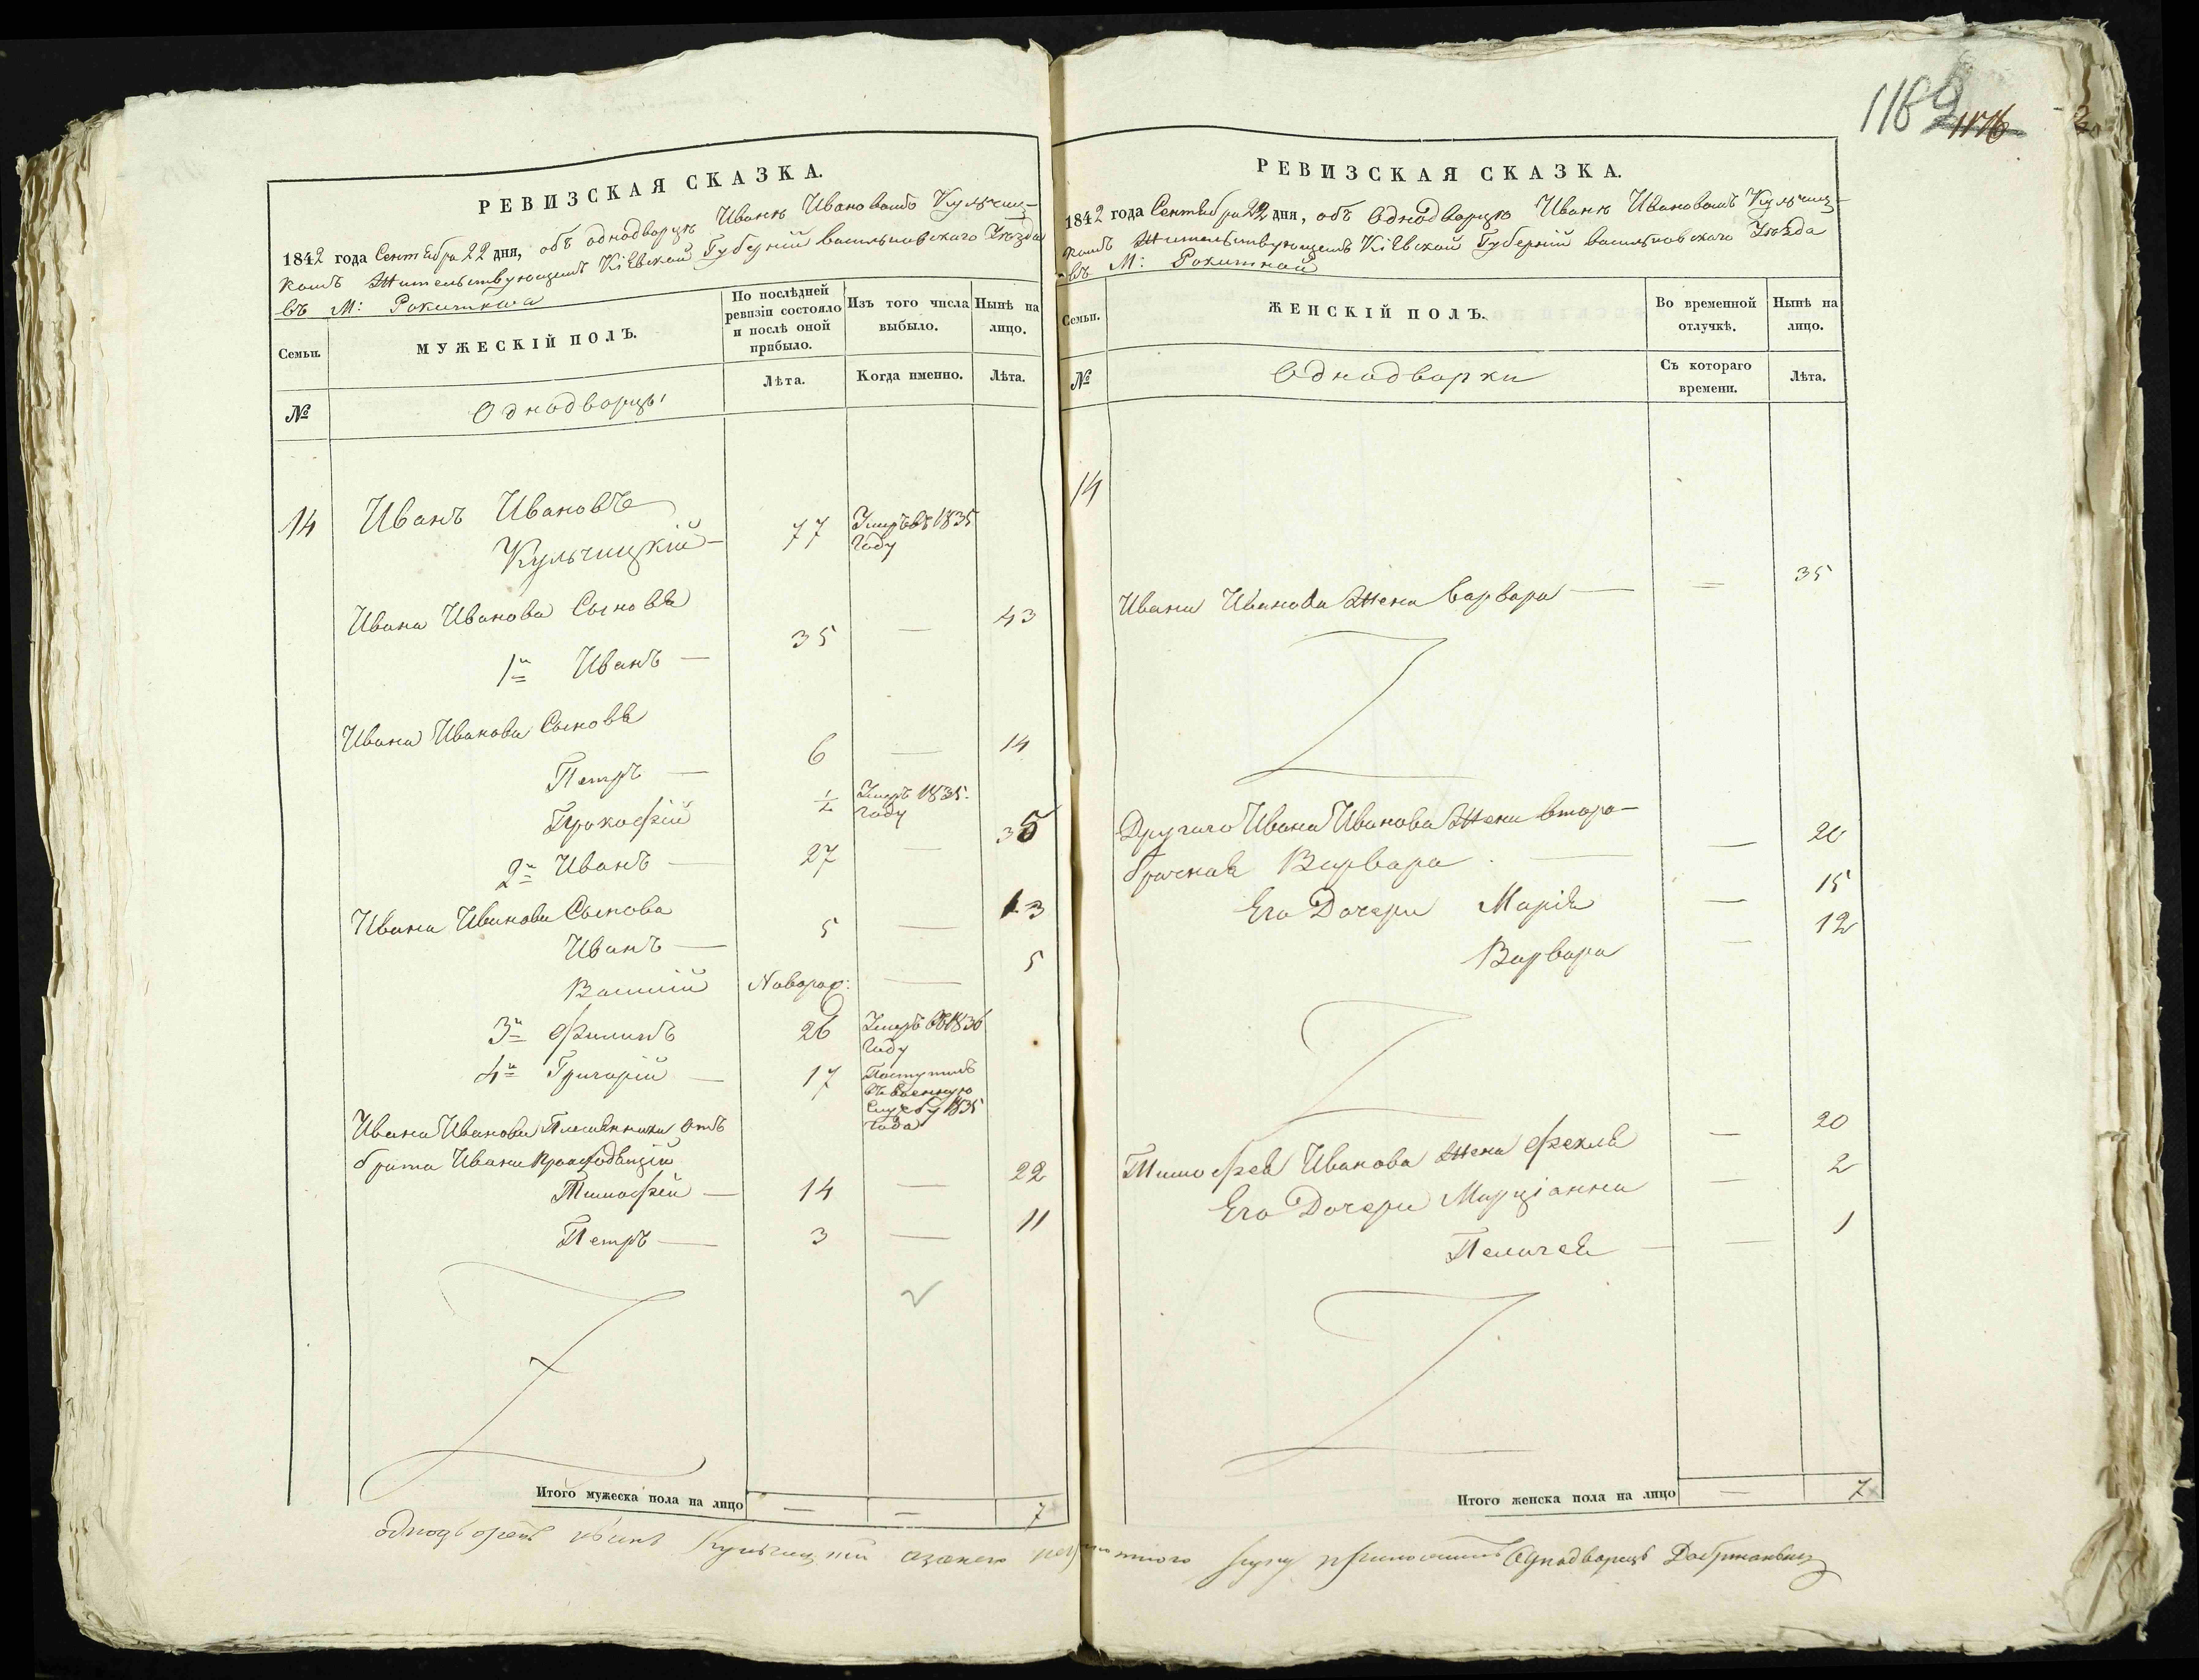 1182
1176
РЕВИЗСКАЯ СКАЗКА.
1842 года Сентября 22 дня, объ однодворцѣ Иванѣ Ивановомъ Кульчиц-
комъ Жительствующемъ Кіевской Губерніи Васильковскаго Уѣзда
въ М: Рокитной
Семьи.
МУЖЕСКІЙ ПОЛЪ.
По послѣдней ревизіи состояло и послѣ оной прибыло.
Изъ того числа выбыло.
Нынѣ на лицо.
№
Однодворцы
Лѣта.
Когда именно.
Лѣта.
14 Иванъ Ивановъ
Кульчицкій 77 Умеръ въ 1835 Году
Ивана Иванова Сыновья
1й Иванъ — 35 — 43
Ивана Иванова Сыновья
Петръ — 6 — 14
Прокофій ½ Умеръ 1835 году
2й Иванъ — 27 — 35
Ивана Иванова Сынова
Иванъ — 5 — 13
Василій Новорож: — 5
3й Филипъ 26 Умеръ въ 1836 Году
4й Григорій — 17 Поступилъ
въ военную
службу 1835
года
Ивана Иванова Племянники отъ
брата Ивана
Тимофей — 14 — 22
Петръ — 3 — 11
Итого мужеска пола на лицо — — 7
РЕВИЗСКАЯ СКАЗКА.
1842 года Сентября 22 дня, объ Однодворцѣ Иванѣ Ивановомъ Кульчиц-
комъ Жительствующемъ Кіевской Губерніи Васильковскаго Уѣзда
въ М: Рокитной
Семьи.
ЖЕНСКІЙ ПОЛЪ.
Во временной отлучкѣ.
Нынѣ на лицо.
№
Однодворки
Съ котораго времени.
Лѣта.
14
Ивана Иванова Жена Варвара — — 35
Другаго Ивана Иванова Жена второ-
брачная Варвара — — 20
Его Дочери Марія — 15
Варвара — 12
Тимофея Иванова Жена Фекла — 20
Его Дочери Марціанна — 2
Пелагея — — 1
Итого женска пола на лицо — 7
однодворецъ Иванъ Кульчицкій азанего неграмотного руку приложилъ Однодворецъ